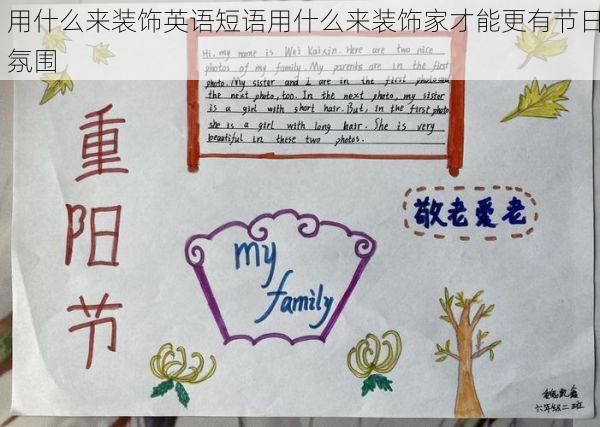 用什么来装饰英语短语用什么来装饰家才能更有节日
氛围
Hi, my name is Wei Kaixin. Here are two nice
photos of my family. My parents are in the first
photo. My sister and I are in the first photo
the next photo, too. In the next photo, my sister
is a girl with short hair. But, in the first photo,
she is a girl with long hair. She is very
beautiful in these two photos.
重
阳
节
敬老爱老
my
family
六年级二班